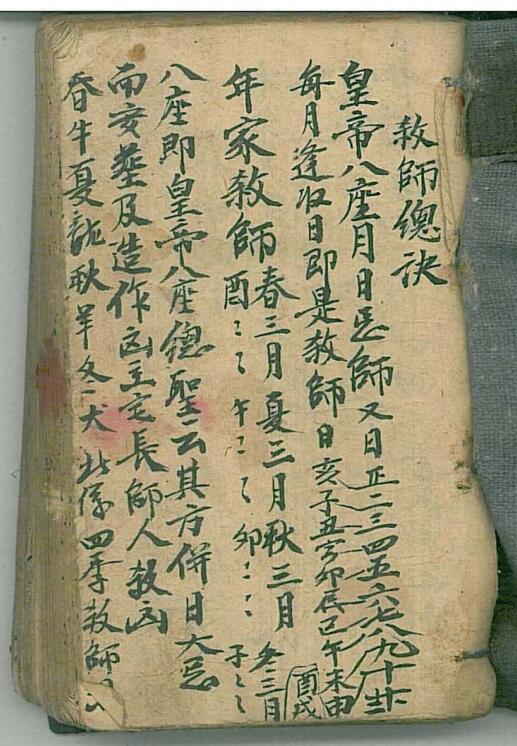 殺師總訣
皇帝八座月日忌師又日正二三四五六七八九十
每月逢收日即是殺師日亥子丑寅卯辰巳午未申酉戌
年家殺師春三月夏三月秋三月冬三月
酉〻〻午〻〻卯〻〻子〻〻
八座即皇帝八座總聖云其方併日大忌
而安葬及造作凶主宅長師人殺凶
春牛夏龍秋羊冬犬此係四季殺師